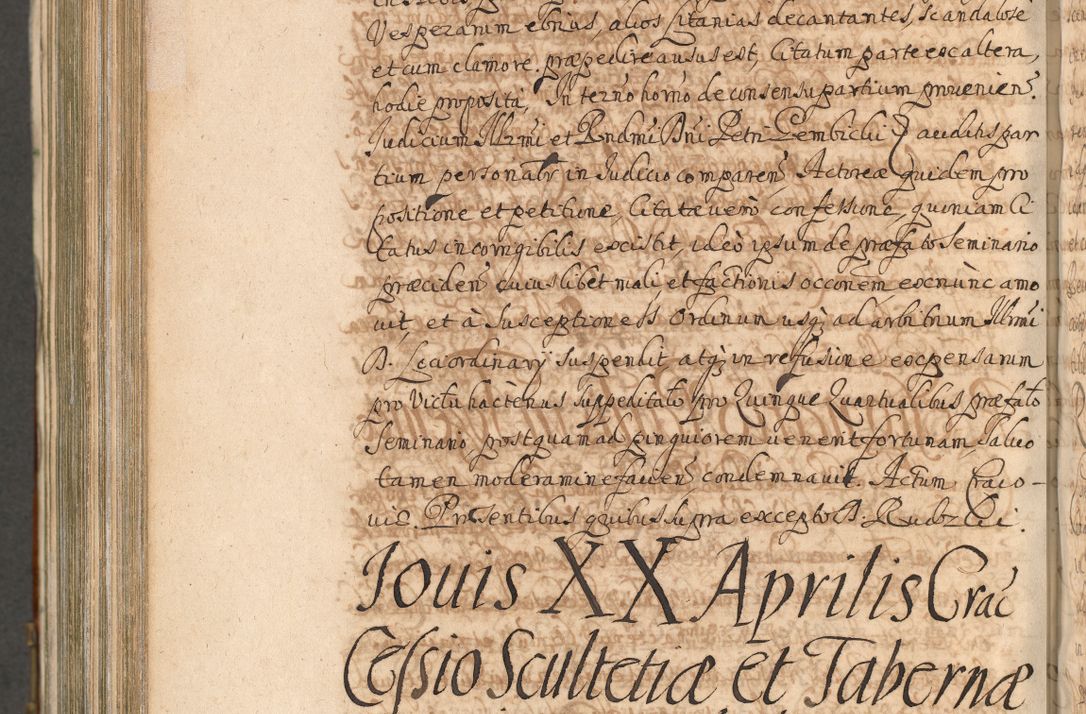 Vesperarum ebrius, alios Litanias decantantes, scandalose
et cum clamore præpedire ausus est, Citatum parte ex altera,
hodie proposita, In termo horno de consensu partium provenien.
Judicium Illrmi et Rndmi Dni Petri Gembicki auditis par
tium personalr in Judicio comparen Actoreæ quidem pro
positione et petitione, Citatæ vero confessione, quoniam Ci
tatus incorrigibilis existit, ideo ipsum de præfato Seminario
præciden cuiuslibet mali et factionis occonem ex nunc amo
vit, et à susceptione SS Ordinum usq ad arbitrium Illrmi
D. Loci ordinary suspendit atq in refusione expensarum
pro Victu hactenus suppeditato pro Quinque Quartualibus præfato
Seminario, postquam ad pinguiorem venerit fortunam, Salvo
tamen moderamine favien condemnavit. Actum Craco-
viæ. Præsentibus quibus supra excepto D. Rudzki.
Iouis XX Aprilis Crac
Cessio Scultetiæ et Tabernæ